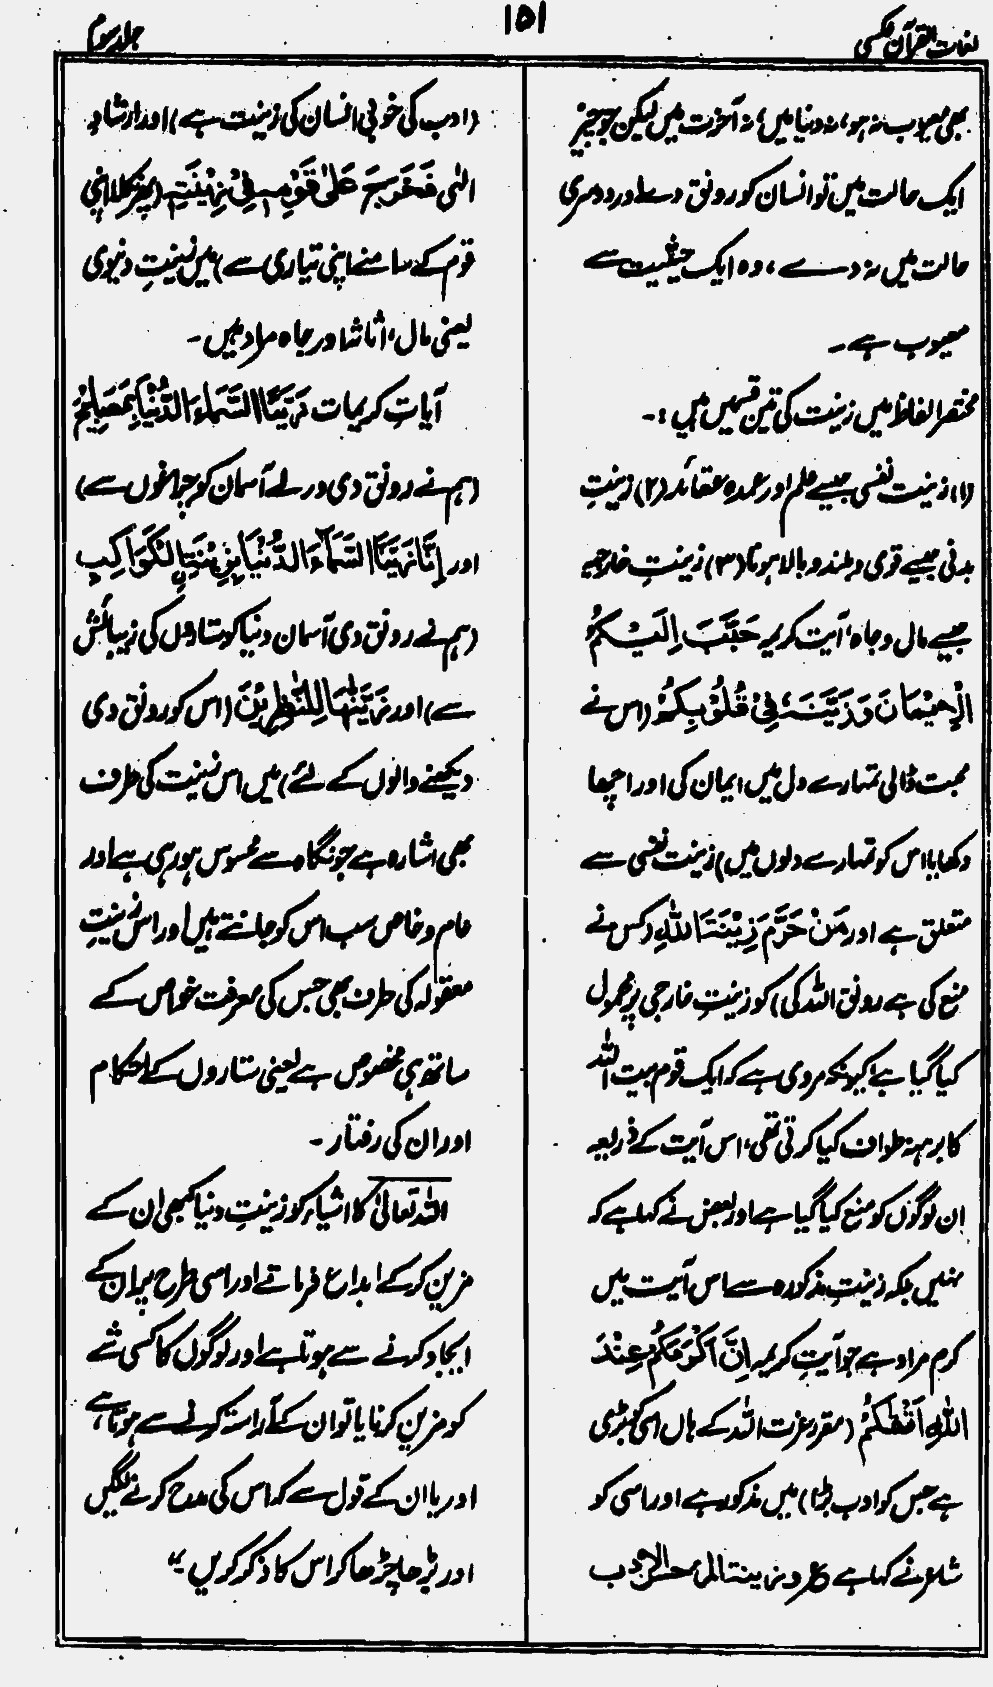 لغات القرآن عکسی
۱۵۱
جلد سوم
بھی معیوب نہ ہو، نہ دنیا میں، نہ آخرت میں لیکن جو چیز
ایک حالت میں تو انسان کو رونق دے اور دوسری
حالت میں نہ دے، وہ ایک حیثیت سے
معیوب ہے۔
مختصر الفاظ میں زینت کی تین قسمیں ہیں :۔
(۱) زینت نفسی جیسے علم اور عمدہ عقائد (۲) زینتِ
بدنی جیسے قوی و بلند و بالا ہونا (۳) زینتِ خارجیہ
جیسے مال و جاہ، آیت کریمہ حَبَّبَ اِلَيْكُمُ
الْاِيْمَانَ وَزَيَّنَهٗ فِيْ قُلُوْبِكُمْ (اس نے
محبت ڈالی تمہارے دل میں ایمان کی اور اچھا
دکھایا اس کو تمہارے دلوں میں) زینت نفسی سے
متعلق ہے اور مَنْ حَرَّمَ زِيْنَةَ اللّٰهِ (کس نے
منع کی ہے رونق اللہ کی) کو زینتِ خارجی پر محمول
کیا گیا ہے کیونکہ مروی ہے کہ ایک قوم بیت اللہ
کا برہنہ طواف کیا کرتی تھی، اس آیت کے ذریعہ
ان لوگوں کو منع کیا گیا ہے اور بعض نے کہا ہے کہ
نہیں بلکہ زینتِ مذکورہ سے اس آیت میں
کرم مراد ہے جو آیتِ کریمہ اِنَّ اَكْرَمَكُمْ عِنْدَ
اللّٰهِ اَتْقٰكُمْ (مقرر عزت اللہ کے ہاں اسی کو بڑی
ہے جس کو ادب بڑا) میں مذکور ہے اور اسی کو
شاعر نے کہا ہے ع وزینة المرء حسن الادب
(ادب کی خوبی انسان کی زینت ہے) اور ارشادِ
الٰہی فَخَرَجَ عَلٰى قَوْمِهٖ فِيْ زِيْنَتِهٖ (پھر نکلا اپنی
قوم کے سامنے اپنی تیاری سے) میں زینتِ دنیوی
یعنی مال، اثاثہ اور جاہ مراد ہیں۔
آیاتِ کریمات زَيَّنَّا السَّمَاءَ الدُّنْيَا بِمَصَابِيْحَ
(ہم نے رونق دی ورلے آسمان کو چراغوں سے)
اور اِنَّا زَيَّنَّا السَّمَآءَ الدُّنْيَا بِزِيْنَةِ الْكَوَاكِبِ
(ہم نے رونق دی آسمان دنیا کو ستاروں کی زیبائش
سے) اور زَيَّنّٰهَا لِلنّٰظِرِيْنَ (اس کو رونق دی
دیکھنے والوں کے لئے) میں اس زینت کی طرف
بھی اشارہ ہے جو نگاہ سے محسوس ہو رہی ہے اور
عام و خاص سب اس کو جانتے ہیں اور اس زینتِ
معقولہ کی طرف بھی جس کی معرفت خواص کے
ساتھ ہی مخصوص ہے یعنی ستاروں کے احکام
اور ان کی رفتار۔
اللہ تعالیٰ کا اشیاء کو زینتِ دنیا کبھی ان کے
مزین کر کے ابداع فرمانے اور اسی طرح پر ان کے
ایجاد کرنے سے ہوتا ہے اور لوگوں کا کسی شے
کو مزین کرنا یا تو ان کے آراستہ کرنے سے ہوتا ہے
اور یا ان کے قول سے کہ اس کی مدح کرنے لگیں
اور بڑھا چڑھا کر اس کا ذکر کریں"